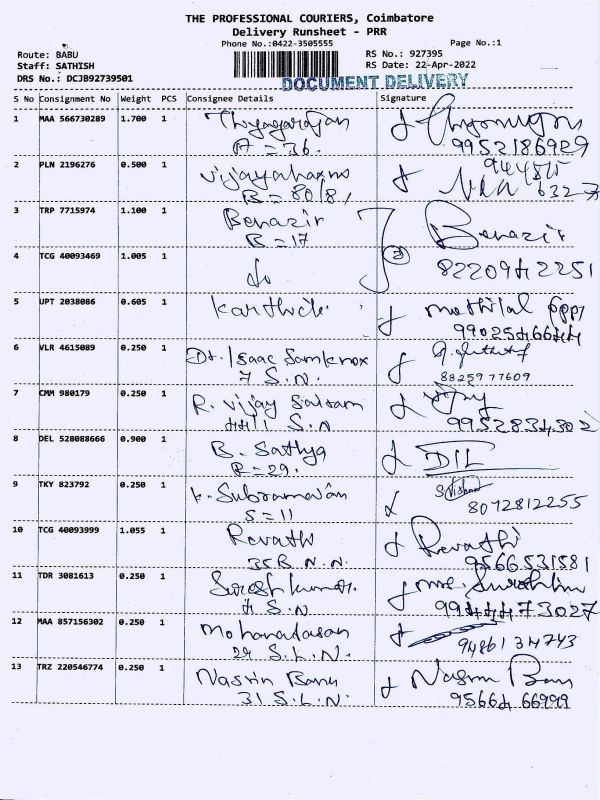 THE PROFESSIONAL COURIERS, Coimbatore
Delivery Runsheet - PRR
Phone No.:0422-3505555
Page No.:1
Route: BABU
RS No.: 927395
Staff: SATHISH
RS Date: 22-Apr-2022
DRS No.: DCJB92739501
DOCUMENT DELIVERY
S No Consignment No Weight PCS Consignee Details Signature
1 MAA 566730289 1.700 1 Thyagarajan
A = 36. 9952186929
2 PLN 2196276 0.500 1
B = 80/8/
3 TRP 7715974 1.100 1 Benazir Benazir
B = 17
4 TCG 40093469 1.005 1 do 3 8220942251
5 UPT 2038086 0.605 1 Karthick mothilal
9902546644
6 VLR 4615089 0.250 1 Dr. Isaac Samknox
7 S.N. 8825977609
7 CMM 980179 0.250 1 R. Vijay Sairam Vijay
S.N 9952834302
8 DEL 528088666 0.900 1 B. Sathya DIL
R = 29.
9 TKY 823792 0.250 1 K. Subramanian
S = 11 8072812255
10 TCG 40093999 1.055 1 Revathi Revathi
35B N.N. 9566531581
11 TDR 3081613 0.250 1 Sureshkumar.
4 S.N. 9944473027
12 MAA 857156302 0.250 1 Mohanadasan
29 S.L.N. 9486134743
13 TRZ 220546774 0.250 1 Nasrin Banu Nasrin Banu
31 S.L.N. 9566466999